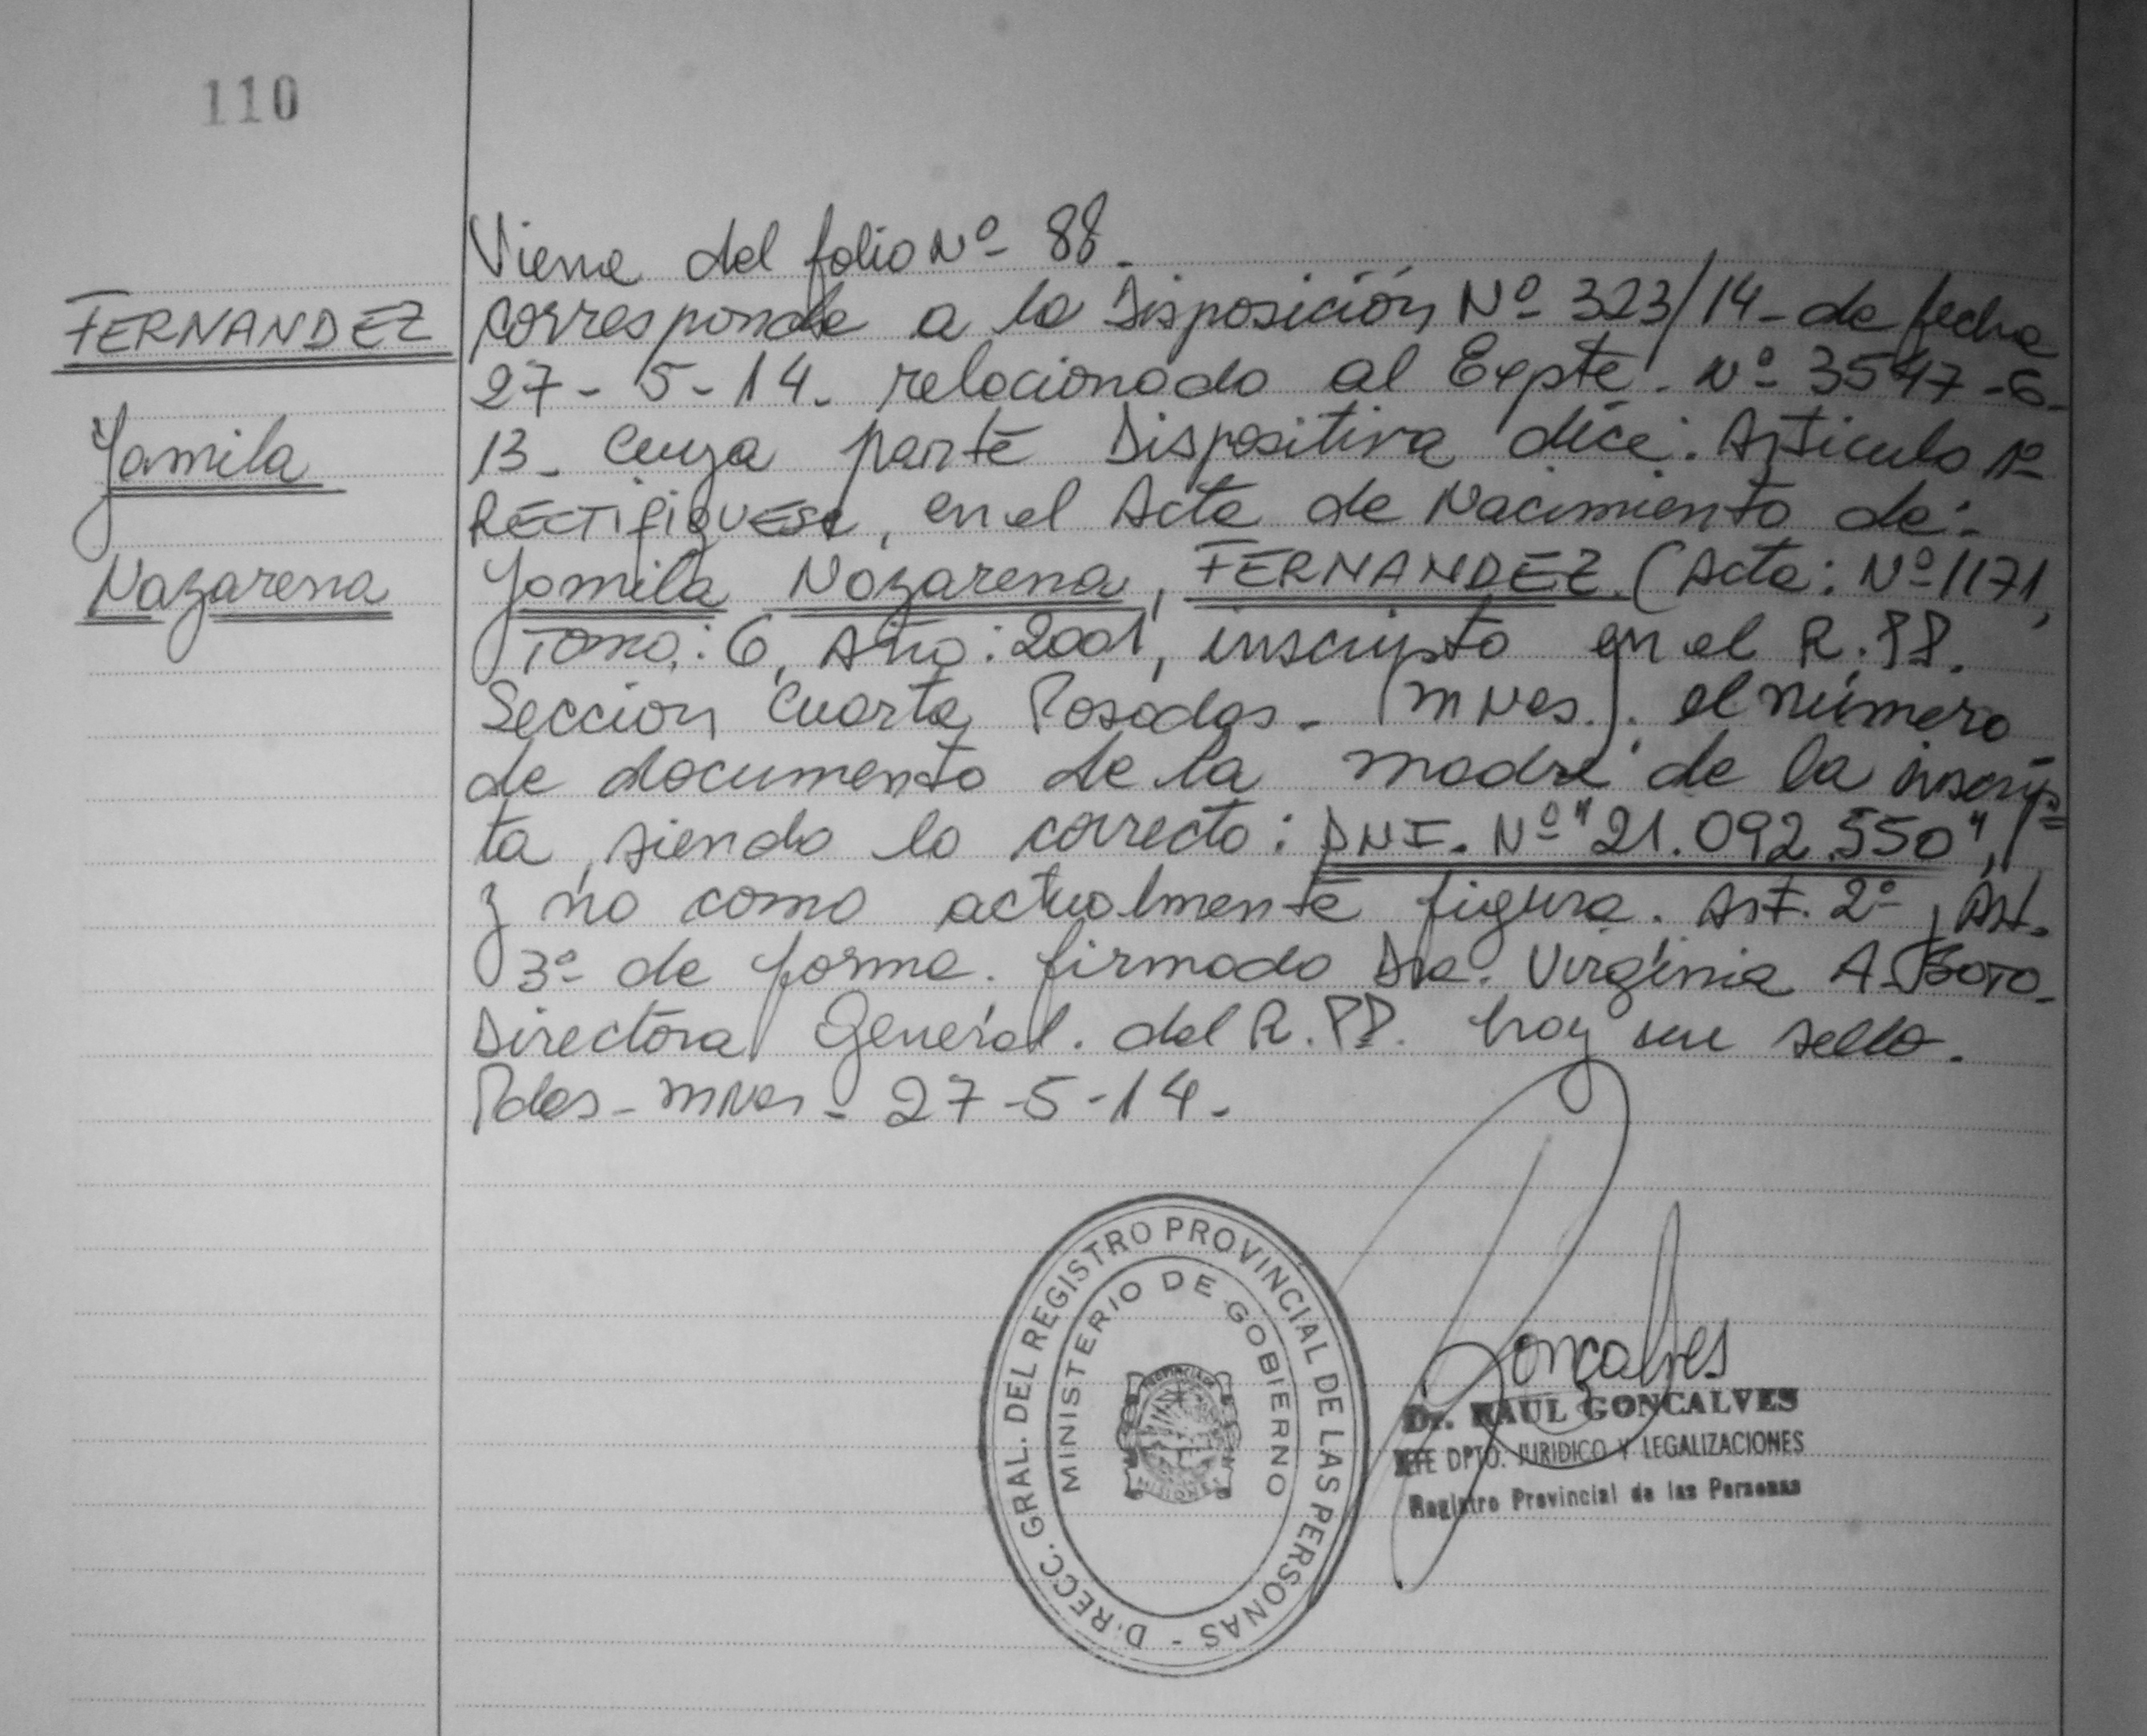 110
Viene del folio Nº 88.
FERNANDEZ
Yamila
Nazarena
corresponde a la Disposición Nº 323/14- de fecha
27-5-14. relacionado al Expte. Nº 3547-6-
13- Cuya parte Dispositiva dice: Articulo 1º
RECTIFIQUESE, en el Acta de Nacimiento de:-
Yamila Nazarena, FERNANDEZ. (Acta: Nº 1171,
Tomo: 6, Año: 2001, inscripto en el R.PP.
Seccion Cuarta Posadas- (mnes). el número
de documento de la madre de la inscrip=
ta, siendo lo correcto: DNI. Nº "21.092.550",
y no como actualmente figura. Art. 2º, Art.
3º de forma. firmado Dra. Virginia A.
Directora General. del R.PP. hay un sello.
Pdas- mnes- 27-5-14-
DIRECC. GRAL. DEL REGISTRO PROVINCIAL DE LAS PERSONAS -
MINISTERIO DE GOBIERNO
PROVINCIA DE
MISIONES
Goncalves
Dr. RAUL GONCALVES
JEFE DPTO. JURIDICO Y LEGALIZACIONES
Registro Provincial de las Personas